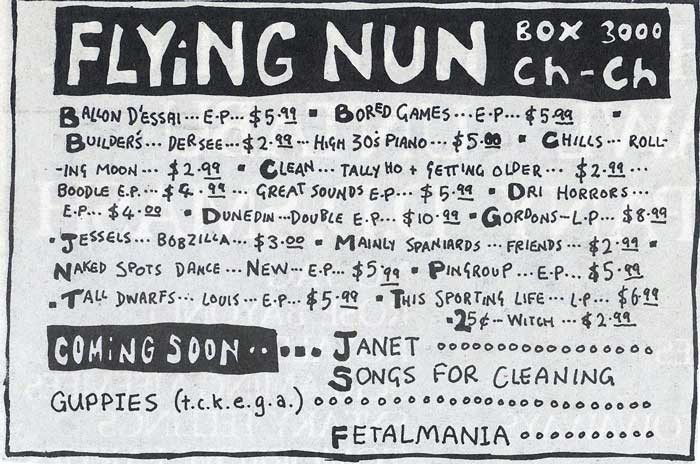 FLYiNG NUN BOX 3000
Ch-Ch
BALLON D'ESSAI...E.P...$5.99 ▪ BORED GAMES...E.P...$5.99 ▪
BUILDER'S...DERSEE...$2.99...HIGH 30's PIANO...$5.00 ▪ CHILLS...ROLL-
-ING MOON...$2.99 ▪ CLEAN...TALLY HO + GETTING OLDER...$2.99...
BOODLE E.P...$4.99...GREAT SOUNDS E.P...$5.99 ▪ DRI HORRORS...
E.P...$4.00 ▪ DUNEDIN...DOUBLE E.P...$10.99 ▪ GORDONS-L.P...$8.99
▪ JESSELS...BOBZILLA...$3.00 ▪ MAINLY SPANIARDS...FRIENDS...$2.99 ▪
NAKED SPOTS DANCE...NEW...E.P...$5.99 ▪ PINGROUP...E.P...$5.99
▪ TALL DWARFS...LOUIS...E.P...$5.99 ▪ THIS SPORTING LIFE...L.P...$6.99
▪ 25¢-WITCH...$2.99
COMiNG SOON..... JANET ..................
SONGS FOR CLEANING
GUPPIES (t.c.k.e.g.a.) ..............................
FETALMANIA ..........